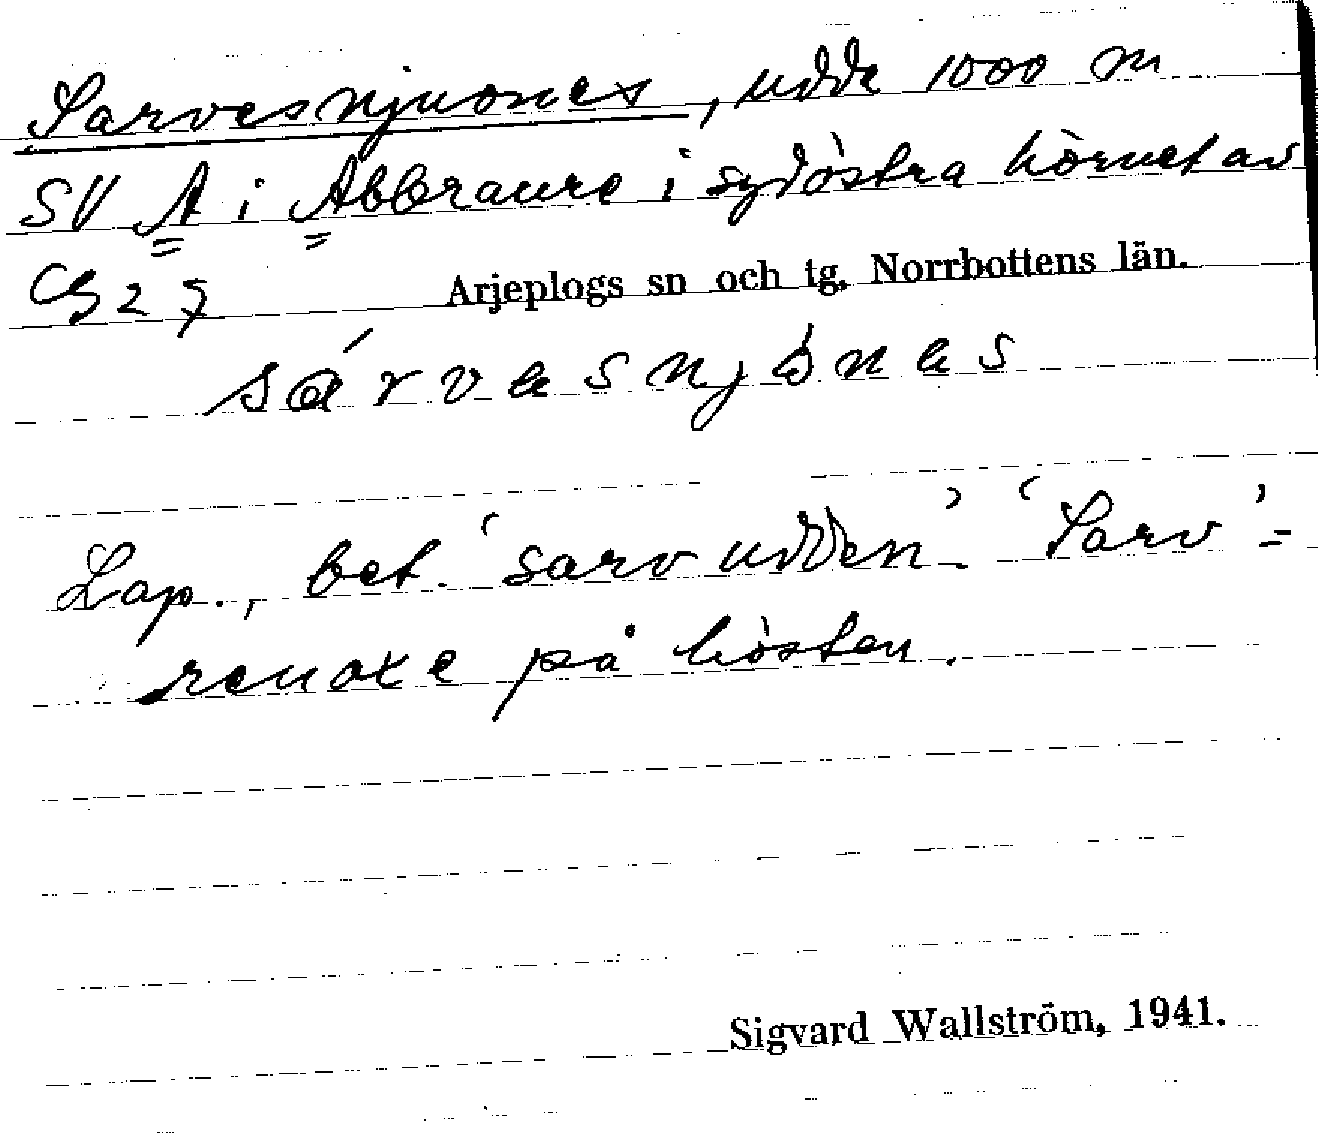 Sarvesnjuones, udde 1000 m
SV A i Abbraure i sydöstra hörnet av
CB 27 Arjeplogs sn och tg, Norrbottens län.
sárvesnjònes
Lap., bet. ‘sarvudden’. ‘Sarv’ =
renoxe på hösten.
Sigvard Wallström, 1941.